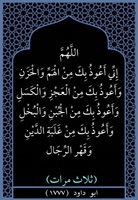 اللَّهُمَّ
إِنِّي أَعُوذُ بِكَ مِنْ الْهَمِّ وَالْحَزَنِ
وَأَعُوذُ بِكَ مِنْ الْعَجْزِ وَالْكَسَلِ
وَأَعُوذُ بِكَ مِنْ الْجُبْنِ وَالْبُخْلِ
وَأَعُوذُ بِكَ مِنْ غَلَبَةِ الدَّيْنِ
وَقَهْرِ الرِّجَالِ
(ثلاث مرات)
ابو داود (١٧٧٧)